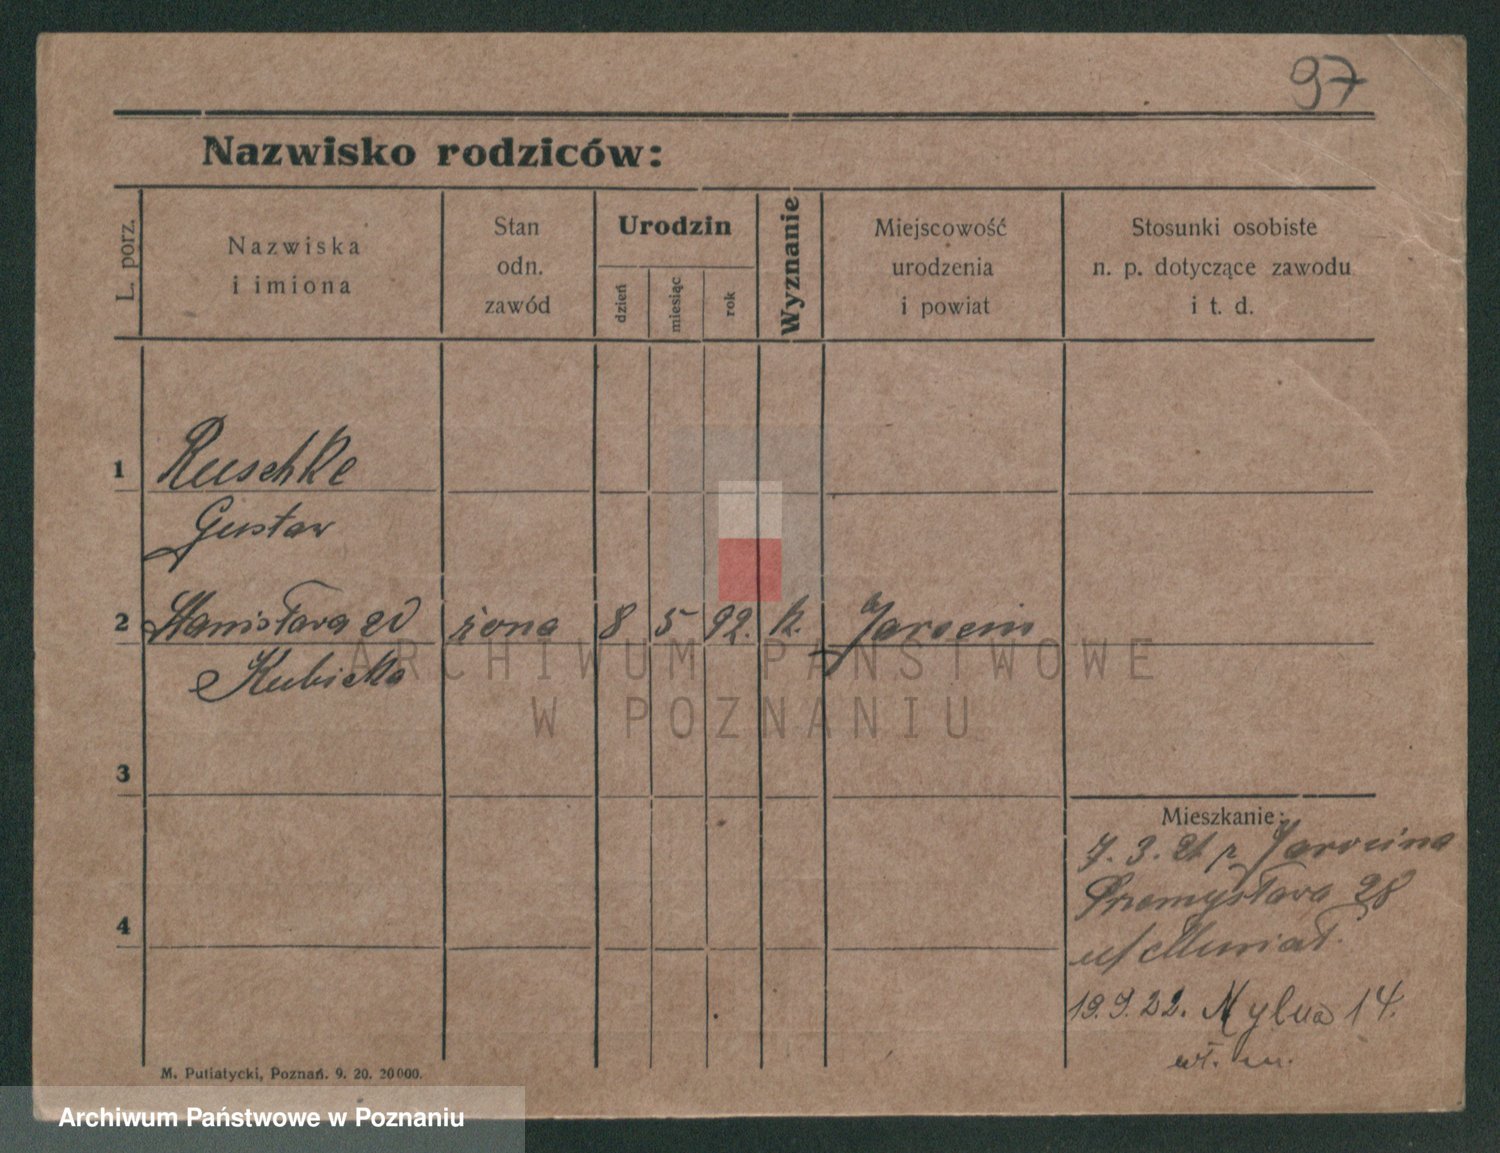 97
Nazwisko rodziców:
L. porz.
Nazwiska
i imiona
Stan
odn.
zawód
Urodzin
dzień
miesiąc
rok
Wyznanie
Miejscowość
urodzenia
i powiat
Stosunki osobiste
n. p. dotyczące zawodu
i t. d.
1 Ruschke
Gustaw
2 Stanisława żona 8 5 92. k. Jarocin
Kubicka
3
4
Mieszkanie:
7. 3. 21 z Jarocina
Przemysława 28
19.9.22. Mylna 14.
wł. m.
M. Putiatycki, Poznań. 9. 20. 20000.
ARCHIWUM PAŃSTWOWE
W POZNANIU
Archiwum Państwowe w Poznaniu